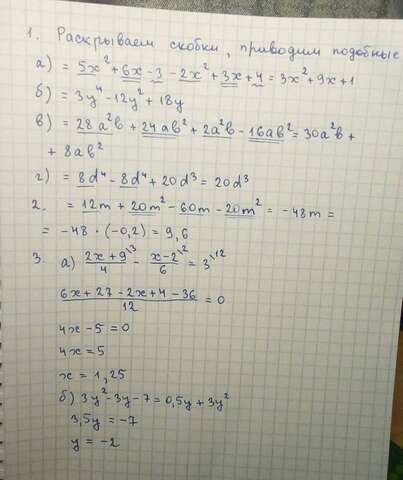 1. Раскрываем скобки, приводим подобные
а) = 5x² + 6x - 3 - 2x² + 3x + 4 = 3x² + 9x + 1
б) = 3y⁴ - 12y² + 18y
в) = 28a²b + 24ab² + 2a²b - 16ab² = 30a²b +
+ 8ab²
г) = 8d⁴ - 8d⁴ + 20d³ = 20d³
2. = 12m + 20m² - 60m - 20m² = -48m =
= -48 · (-0,2) = 9,6
3. а) (2x + 9)/4 \3 - (x - 2)/6 \2 = 3 \12
(6x + 27 - 2x + 4 - 36)/12 = 0
4x - 5 = 0
4x = 5
x = 1,25
б) 3y² - 3y - 7 = 0,5y + 3y²
3,5y = -7
y = -2